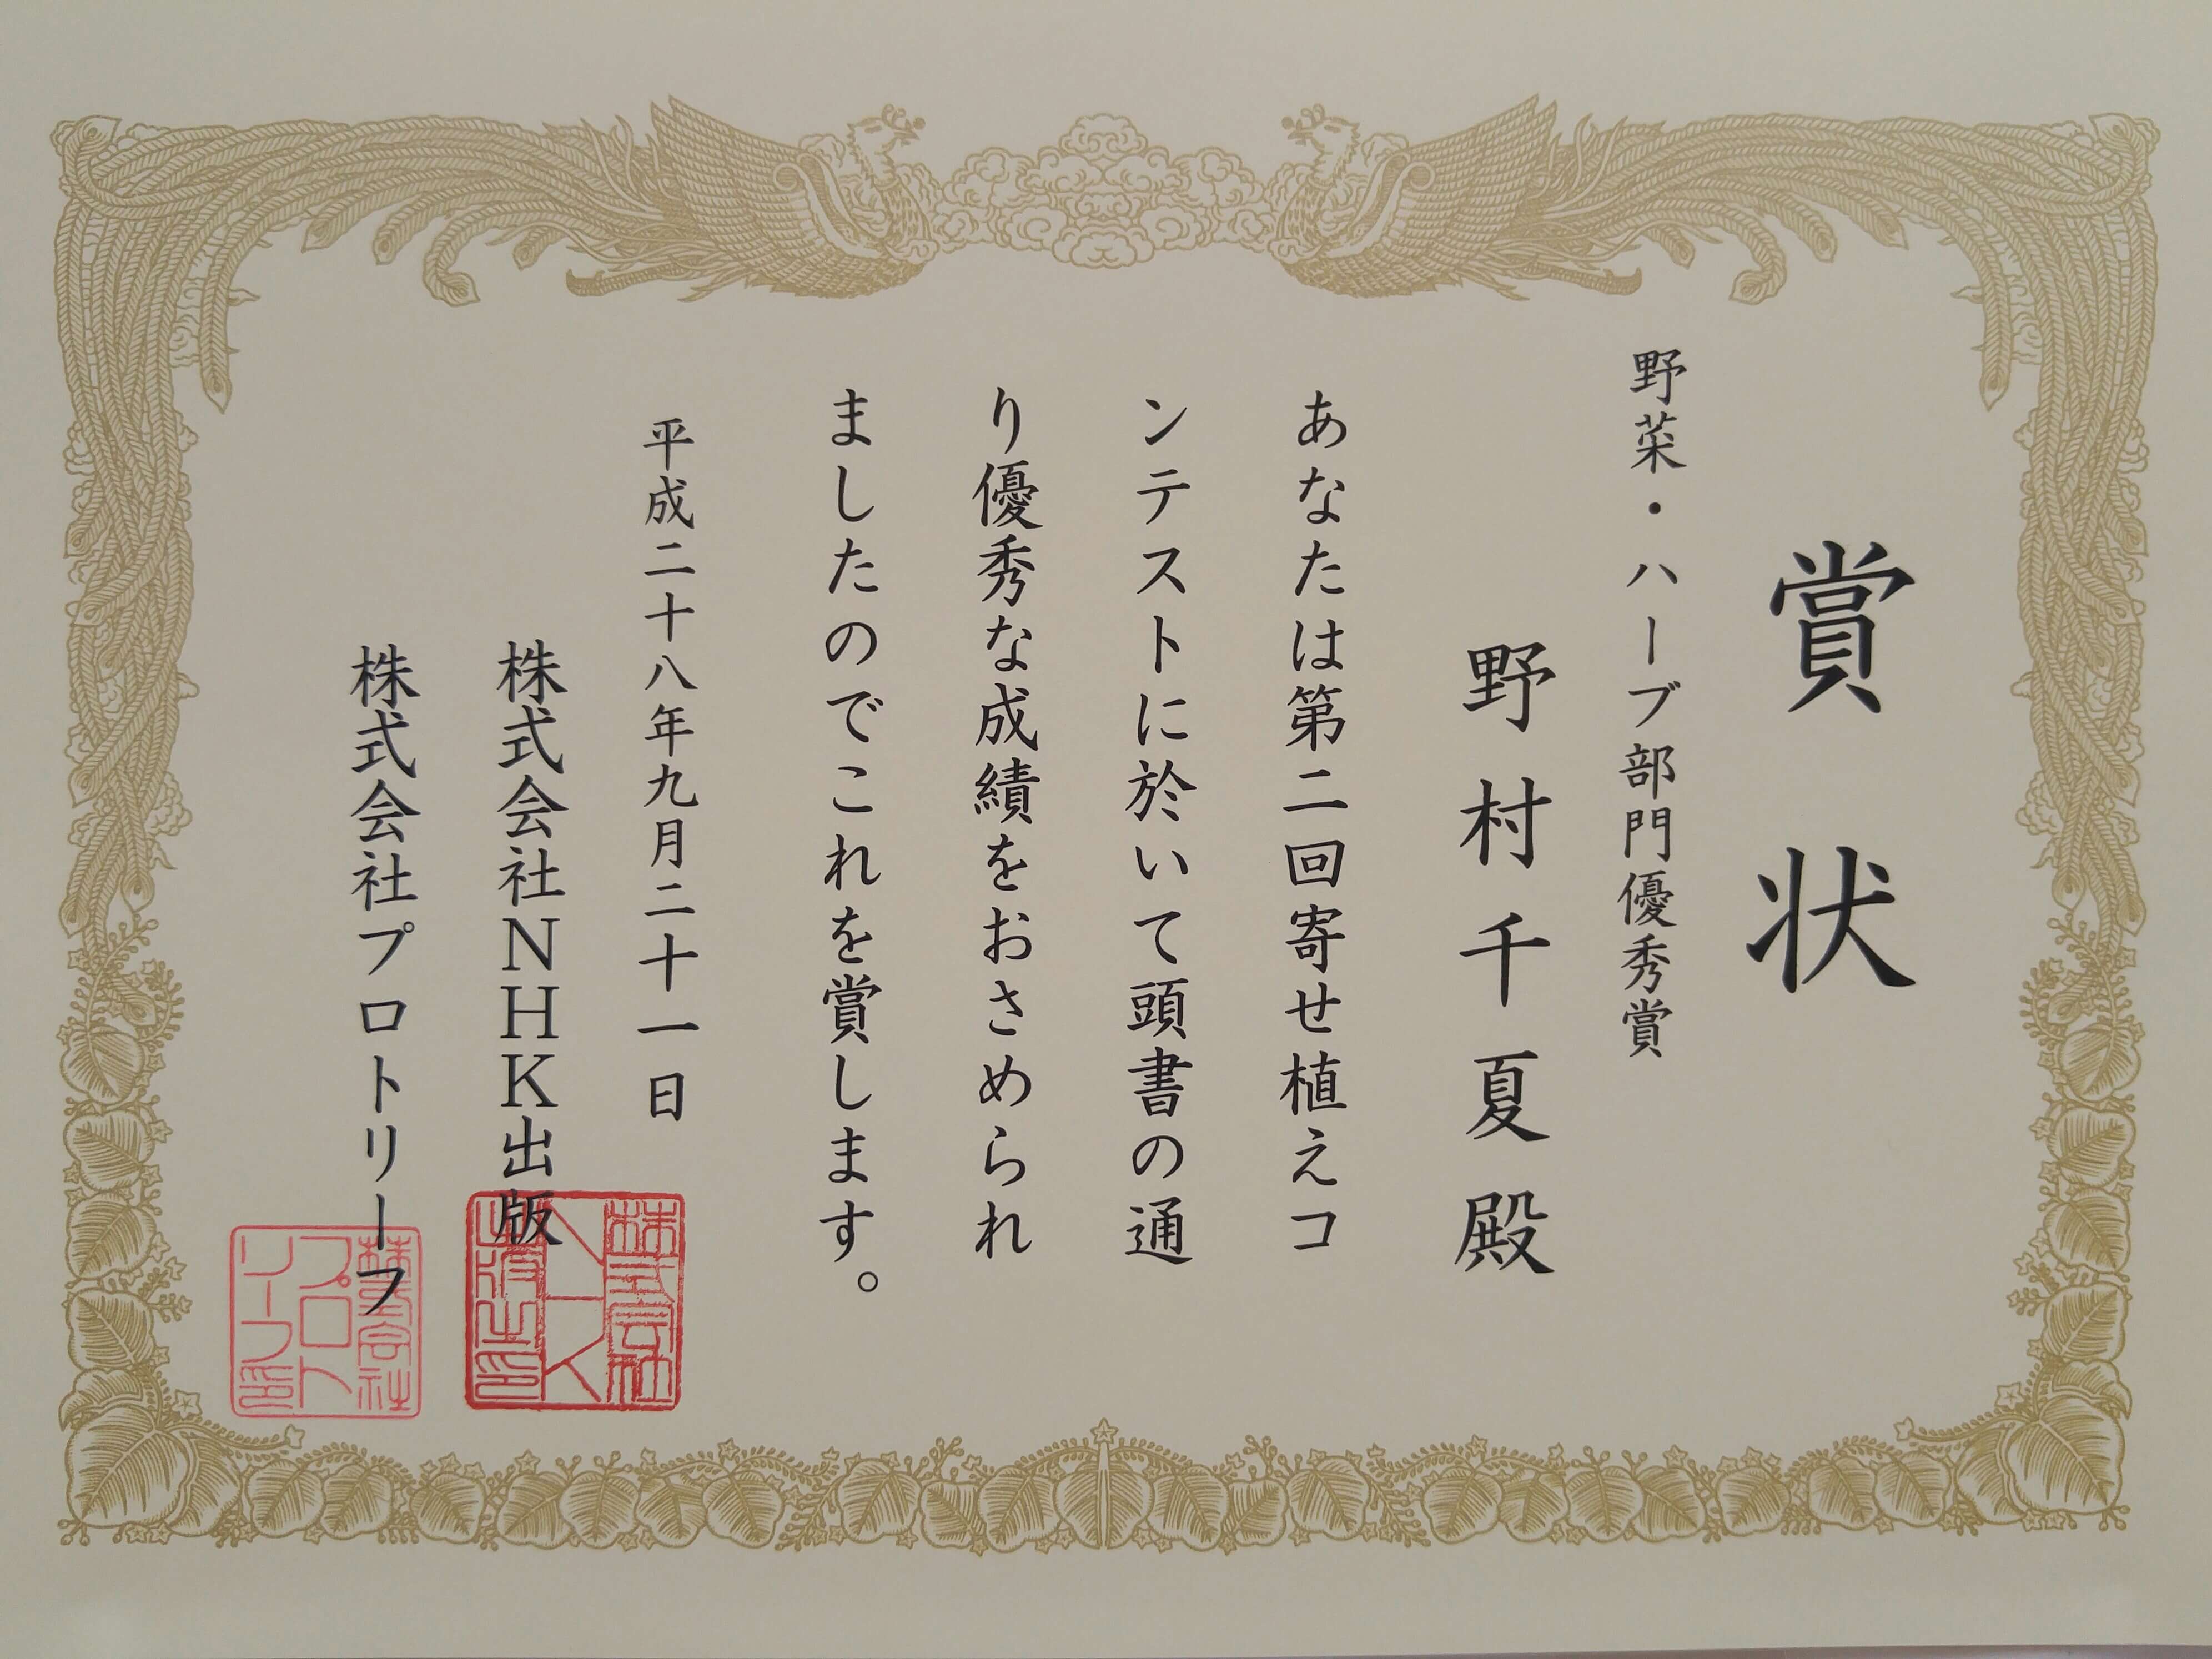 賞状
野菜・ハーブ部門優秀賞
野村千夏殿
あなたは第二回寄せ植えコ
ンテストに於いて頭書の通
り優秀な成績をおさめられ
ましたのでこれを賞します。
平成二十八年九月二十一日
株式会社NHK出版
株式会社プロトリーフ
株式会社
NHK
出版之印
株式会社
プロト
リーフ印